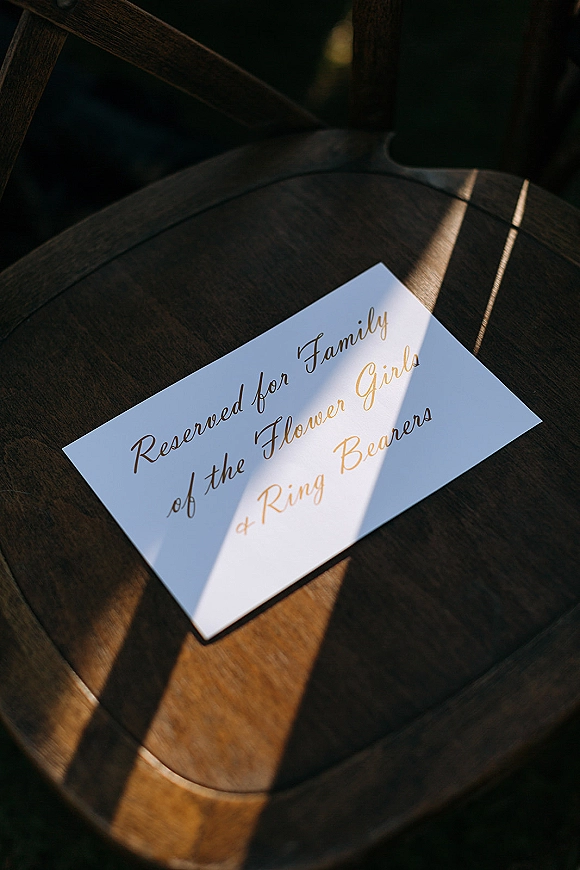 Reserved for Family
of the Flower Girls
& Ring Bearers